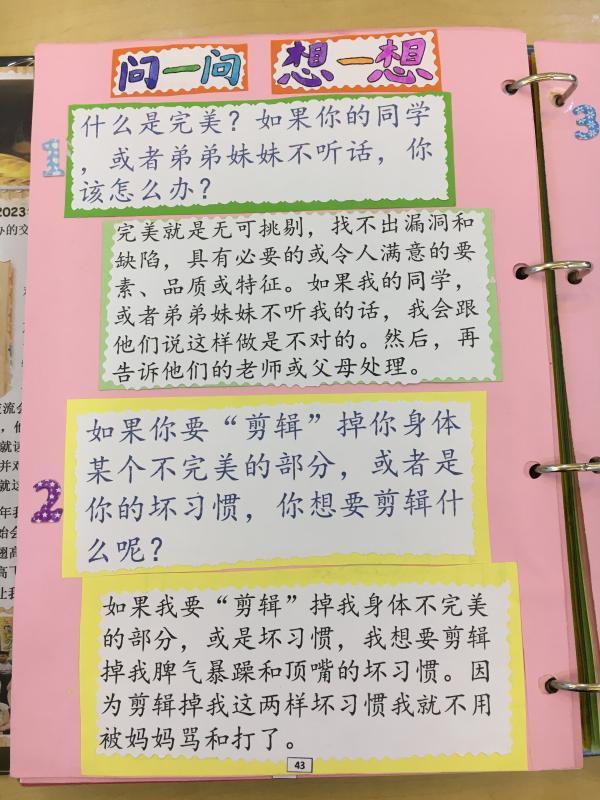 问一问 想一想
1
什么是完美？如果你的同学
，或者弟弟妹妹不听话，你
该怎么办？
完美就是无可挑剔，找不出漏洞和
缺陷，具有必要的或令人满意的要
素、品质或特征。如果我的同学，
或者弟弟妹妹不听我的话，我会跟
他们说这样做是不对的。然后，再
告诉他们的老师或父母处理。
2
如果你要“剪辑”掉你身体
某个不完美的部分，或者是
你的坏习惯，你想要剪辑什
么呢？
如果我要“剪辑”掉我身体不完美
的部分，或是坏习惯，我想要剪辑
掉我脾气暴躁和顶嘴的坏习惯。因
为剪辑掉我这两样坏习惯我就不用
被妈妈骂和打了。
43
3
2023
办的交
流会
，他
就读
并对
就这
年我
始会
翅高
高下
让我